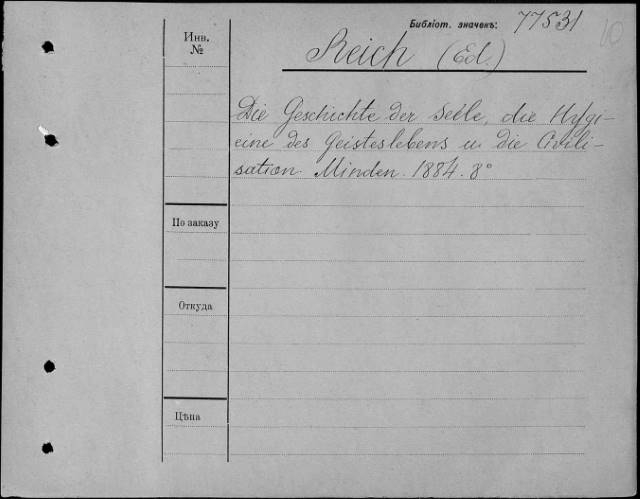 Библіот. значекъ: 77531 10
Инв.
№
Reich (Ed.)
Die Geschichte der Selle, die Hygi-
eine des Geisteslebens u. die Civili-
sation. Minden. 1884. 8°
По заказу
Откуда
Цѣна